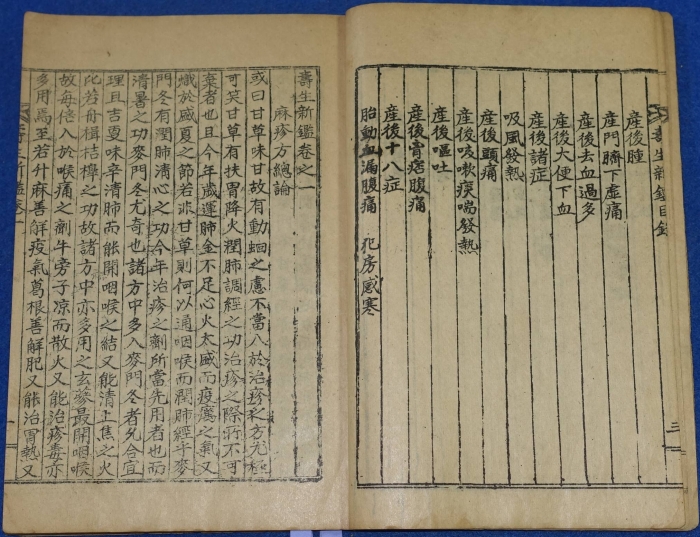 壽生新鑑目錄
產後腫
產門臍下虛痛
產後去血過多
產後大便下血
產後諸症
吸風發熱
產後頭痛
產後咳嗽痰喘發熱
產後嘔吐
產後骨痞腹痛
產後十八症
胎動血漏腹痛 花房感寒
三
壽生新鑑卷之一
麻疹方總論
或曰甘草味甘故有動蛔之慮不當入於治疹之方尤極
可笑甘草有扶胃降火潤肺調經之功治疹之際所不可
棄者也且今年歲運肺金不足心火太盛而疫癘之氣又
熾於盛夏之節若非甘草則何以通咽喉而潤肺經乎麥
門冬有潤肺清心之功今年治疹之劑所當先用者也而
清暑之功麥門冬尤奇也諸方中多入麥門冬者允合宜
理且吉更味辛清肺而能開咽喉之結又能清上焦之火
此若舟楫桔槹之功故諸方中亦多用之玄蔘最開咽喉
故每倍入於喉痛之劑牛旁子凉而散火又能治疹毒亦
多用焉至若升麻善解疫氣葛根善解肥又能治胃熱又
壽生新鑑卷一
一